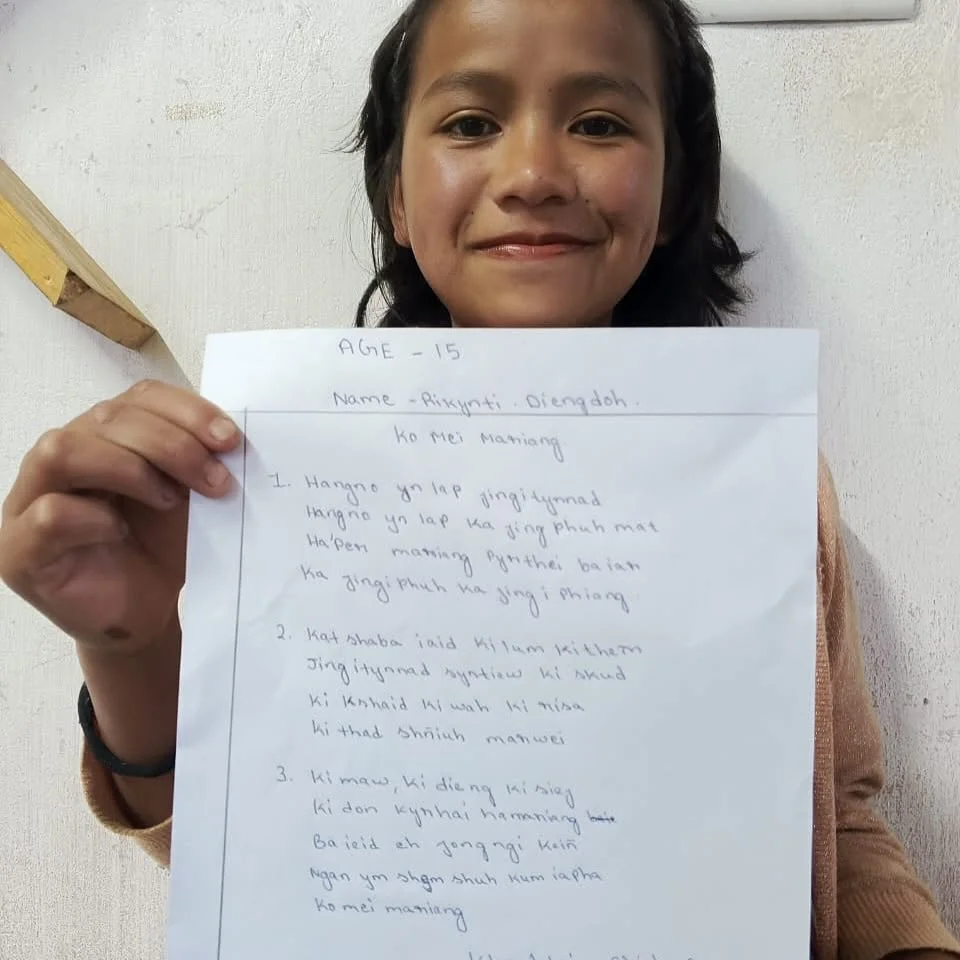 AGE - 15
Name - Rikynti . Diengdoh .
Ko Mei Mariang
1. Hangno yn lap jingitynnad
Hangno yn lap ka jing phuh mat
Ha'Pen mariang Pynthei ba ian
Ka jingiphuh ka jing i phiang
2. Kat shaba iaid ki lum ki them
Jingitynnad syntiew ki skud
Ki Kshaid ki wah ki nisa
Ki thad shñiuh marwei
3. Ki maw, ki dieng ki siej
Ki don kynhai hamariang
Ba ieid eh jong ngi Kein
Ngan ym shem shuh kum iapha
Ko mei mariang